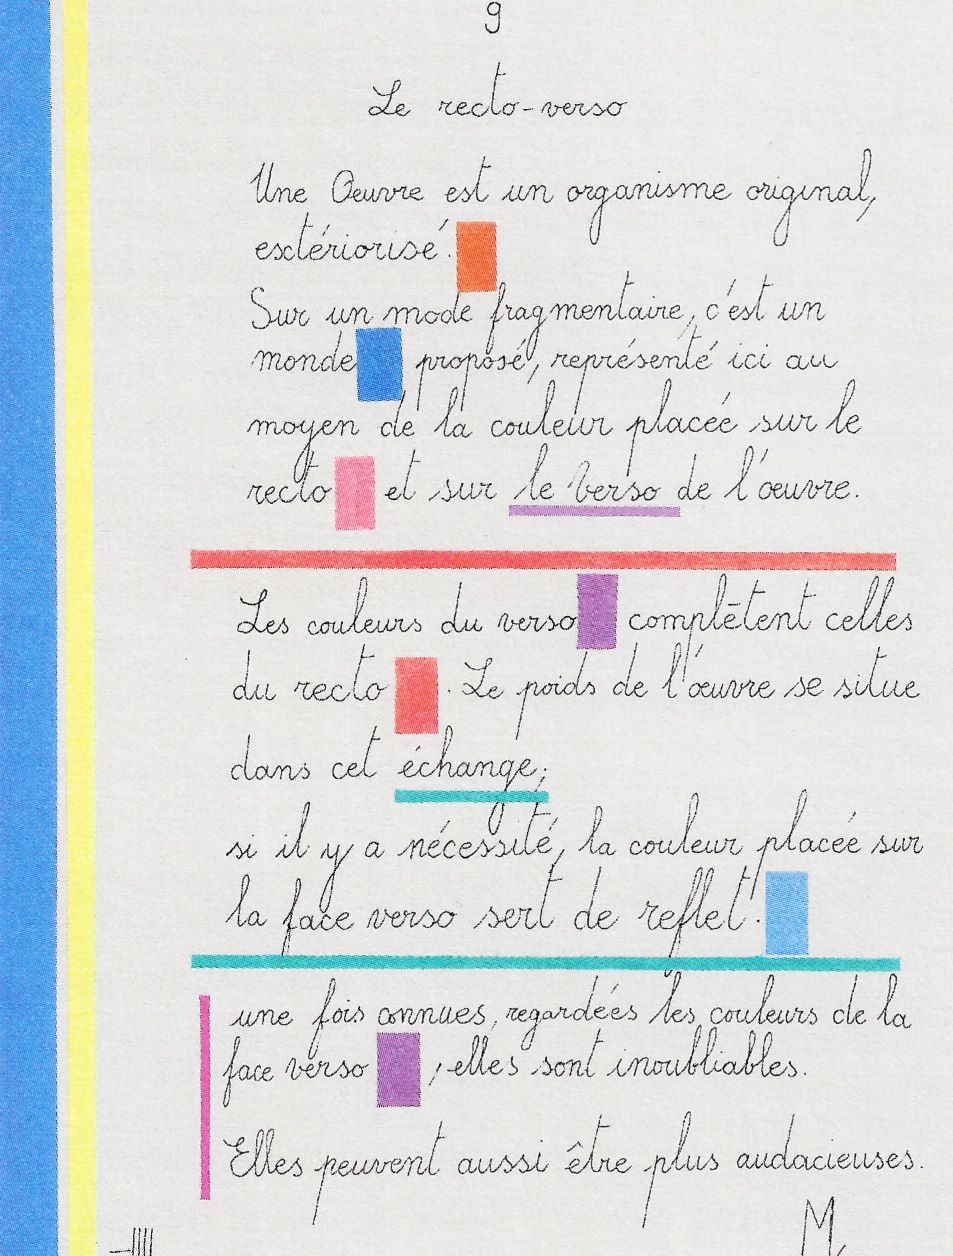 9
Le recto-verso
Une Œuvre est un organisme original,
extériorisé.
Sur un mode fragmentaire, c'est un
monde proposé, représenté ici au
moyen de la couleur placée sur le
recto et sur le verso de l'œuvre.
Les couleurs du verso complètent celles
du recto . Le poids de l'œuvre se situe
dans cet échange;
si il y a nécessité, la couleur placée sur
la face verso sert de reflet.
une fois connues, regardées les couleurs de la
face verso , elles sont inoubliables.
Elles peuvent aussi être plus audacieuses.
M